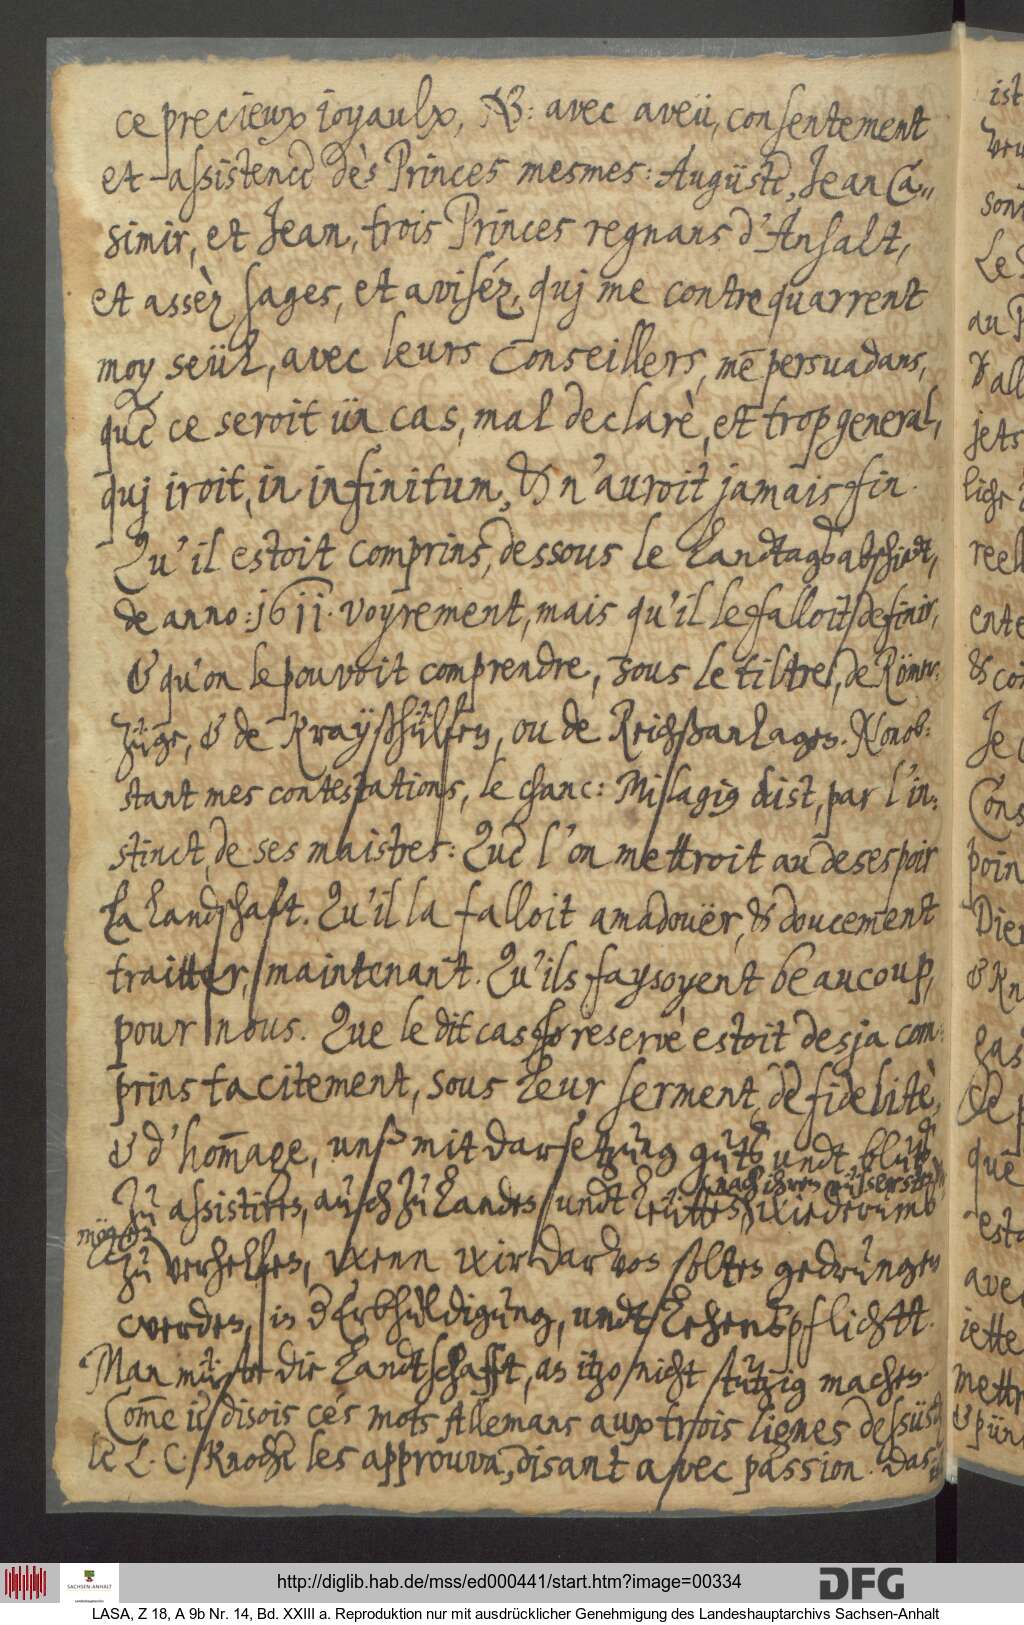 ce precieux joyaulx, NB: avec aveü, consentement
et assistence dès Princes mesmes: Auguste, Jean Ca„
simir, et Jean, trois Princes regnans d'Anhalt,
et assèz sages, et aviséz, quj me contrequarrent
moy seül, avec leurs Conseillers, me persuadans,
que ce seroit ün cas, mal declarè, et trop general,
quj iroit, in infinitum, & n'auroit jamais fin.
Qu'il estoit comprins, dessous le Landtagsabschiedt,
de anno: 1611. voyrement, mais qu'il le falloit definir,
& qu'on le pouvoit comprendre, sous le tiltre, de Römer:
züge, & de Krayßhülfen, ou de Reichßanlagen. Nonob:
stant mes contestations, le chanc: Milagig dist, par l'in:
stinct, de ses maistres: Que l'on mettroit au desespoir
la Landschaft. Qu'il la falloit amadouër, & doucement
traitter, maintenant. Qu'ils faysoyent beaucoup,
pour nous. Que le dit cas reservè estoit desja com:
prins tacitement, sous leur serment, de fidelitè,
& d'hom̄age, unß mit darsetzung guts undt bluts
nach ihrem eüsersten
zu assistiren, auch zu Landes undt Leüttes wiederumb
mögen
zu verhelfen, wenn wir darvon solten gedrungen
werden, in der Erbhuldigung, undt Lehenspflichtt.
Man müste die Landtschafft, an itzo nicht stutzig machen.
Com̄e ie disois cés mots Allemans aux trois lignes dessüs,
le L. C. Knoche les approuva, disant avec passion. Das
http://diglib.hab.de/mss/ed000441/start.htm?image=00334
SACHSEN-ANHALT
DFG
LASA, Z 18, A 9b Nr. 14, Bd. XXIII a. Reproduktion nur mit ausdrücklicher Genehmigung des Landeshauptarchivs Sachsen-Anhalt